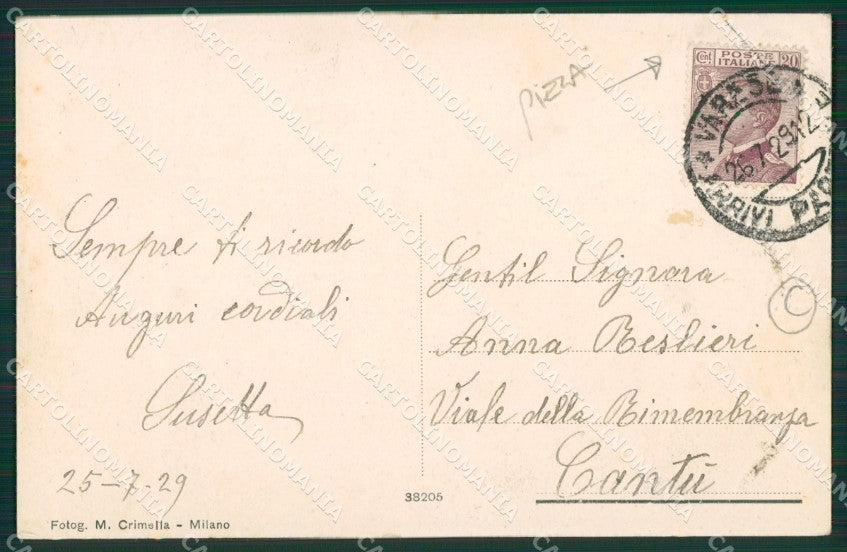 PIZZA
Cent POSTE 20
ITALIANE
VARESE
26.7.29.12
ARRIVI
Sempre ti ricordo
Auguri cordiali
Susetta
25-7-29
Gentil Signora
Anna Beslieri
Viale della Rimembranza
Cantù
C
38205
Fotog. M. Crimella - Milano
CARTOLINOMANIA